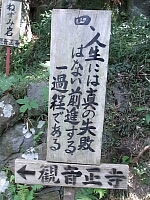 四
人生には真の失敗
はない前進する
一過程である
←観音正寺
ねずみ岩